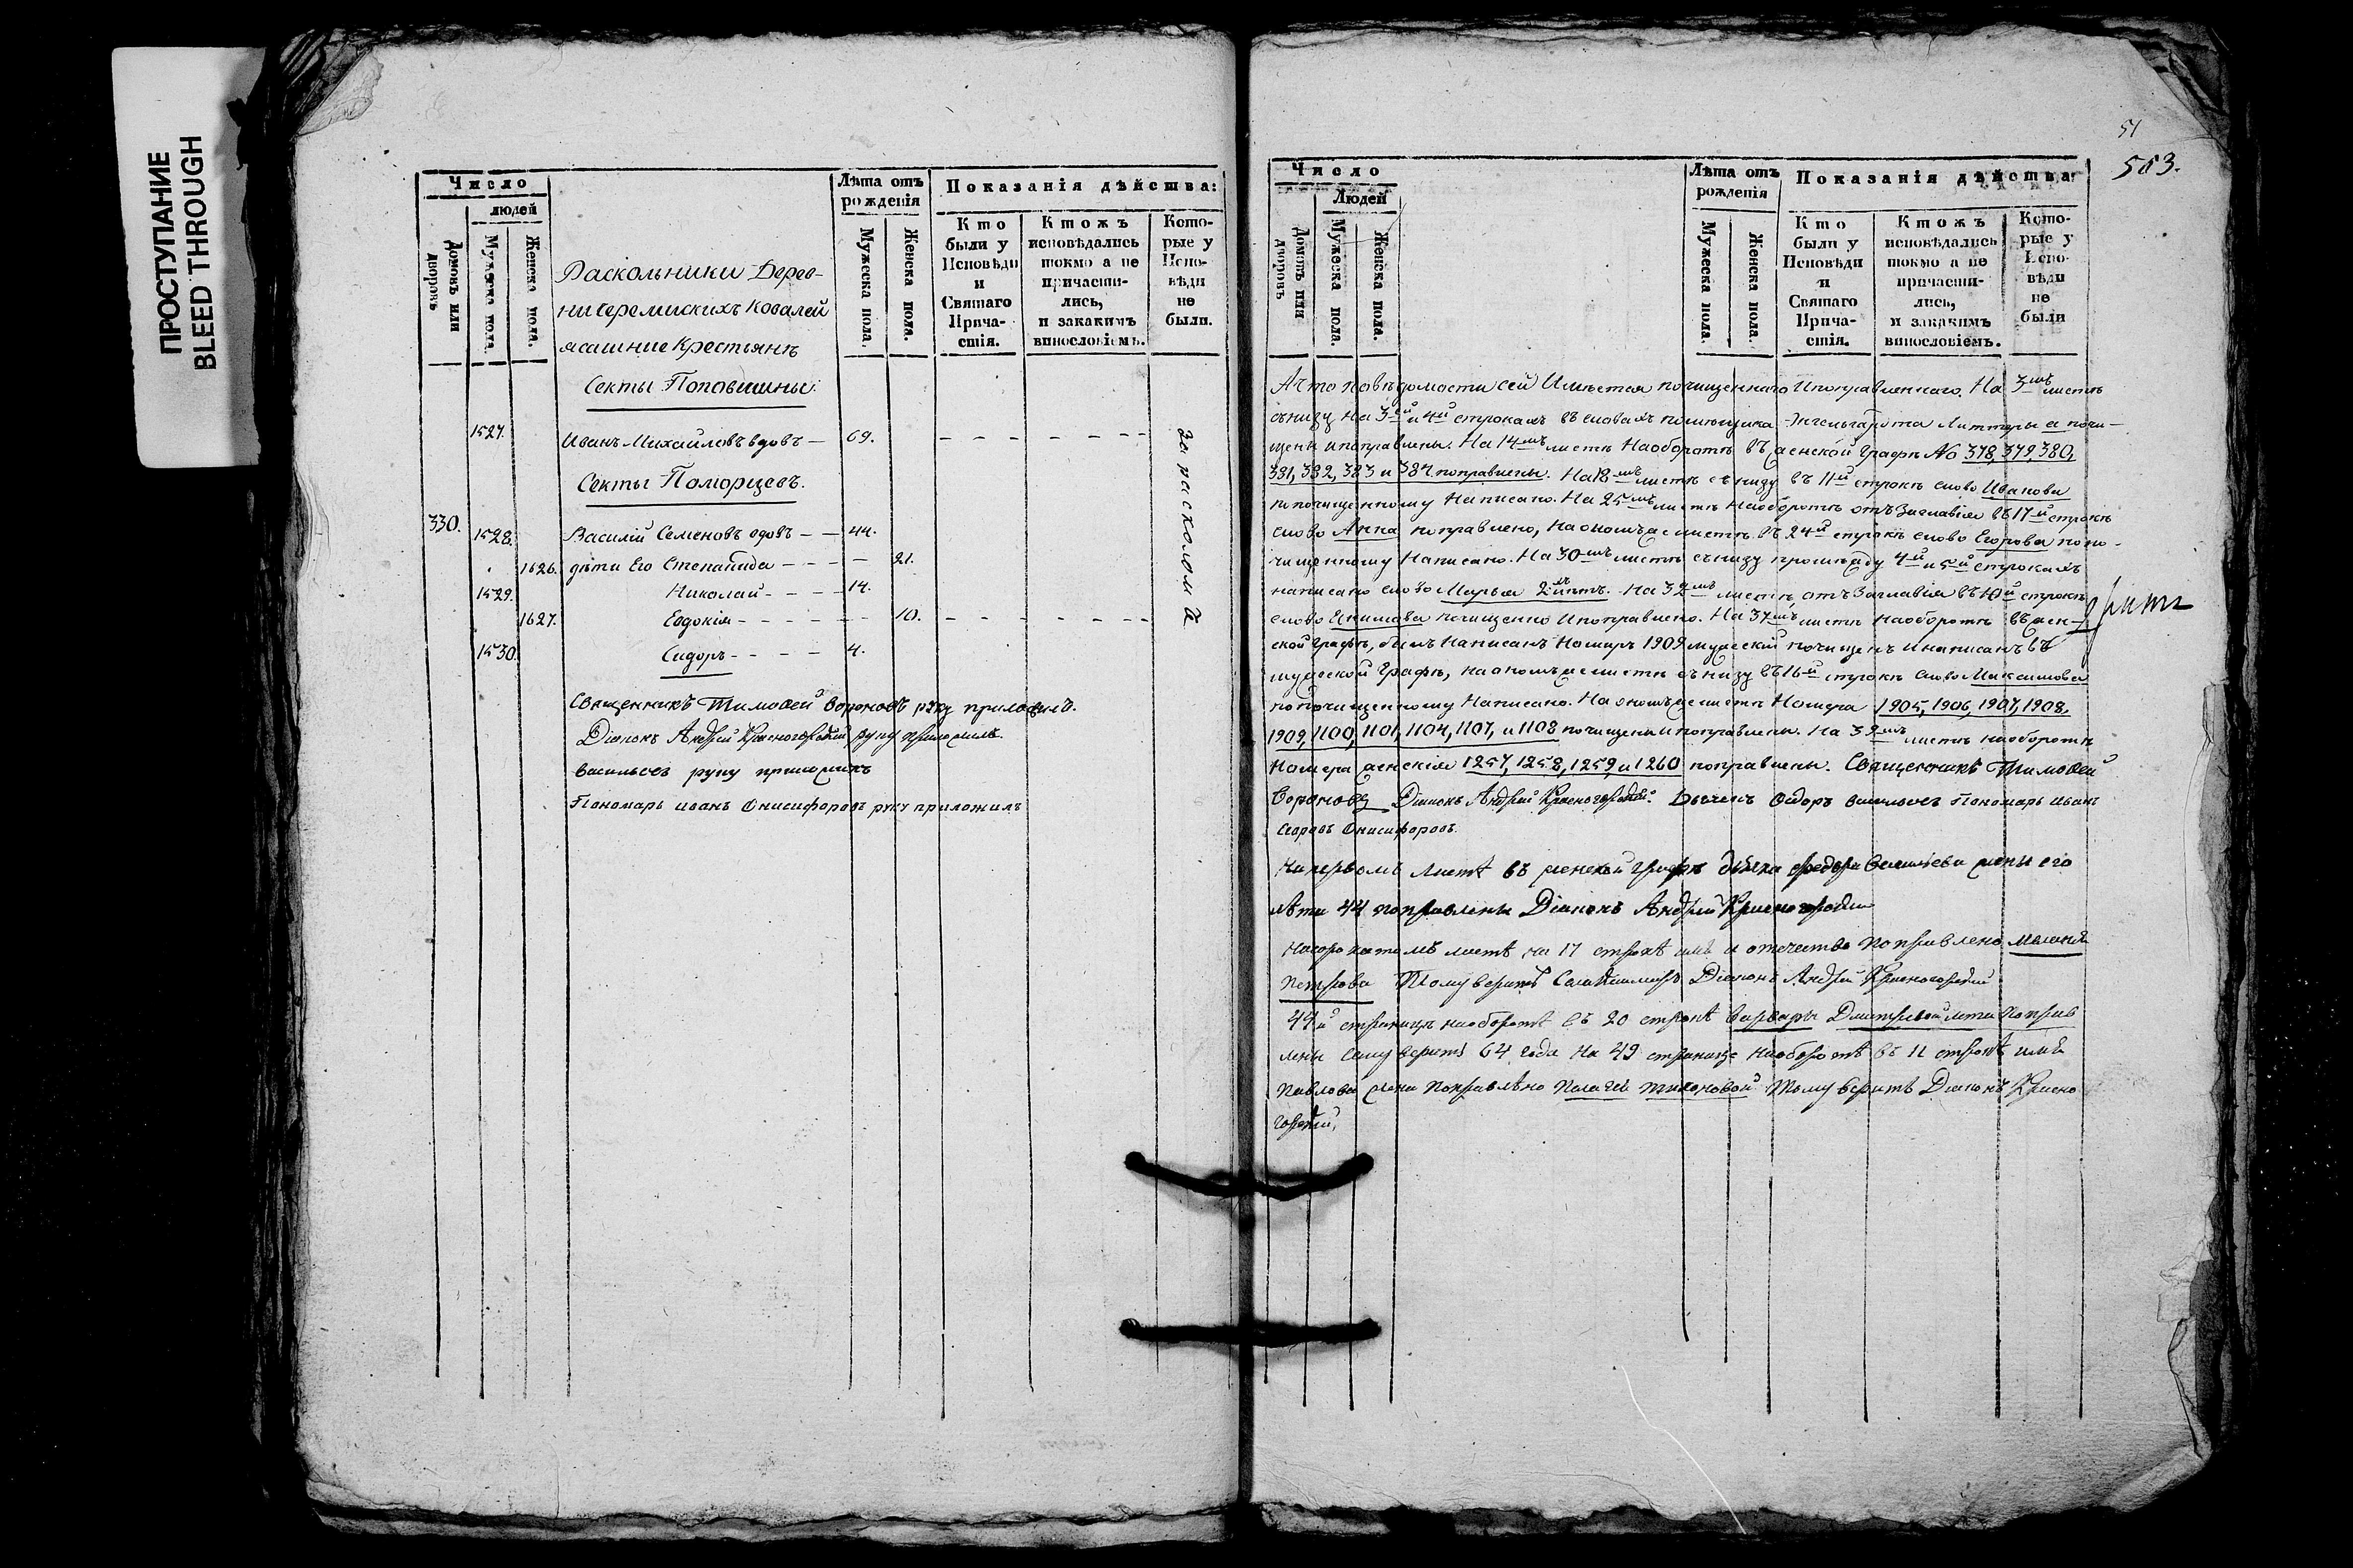 ПРОСТУПАНИЕ
BLEED THROUGH
Число
людей
Домовъ или дворовъ
Мужеска пола.
Женска пола.
Раскольники Дерев-
ни Черемискихъ Ковалей
ясашние Крестьянѣ
Лѣта отъ рожденія
Мужеска пола.
Женска пола.
Показанія дѣйства:
Кто были у Исповѣди и Святаго Прича-стія.
Ктожъ исповѣдались токмо а не причасти-лись, и закакимъ винословіемъ.
Кото-рые у Испо-вѣди не были.
Секты Поповщины.
1527. Иванъ Михайловъ вдовъ — 69.
Секты Поморцевъ.
330. 1528. Василій Семеновъ вдовъ — — 44.
1626. дѣти Его Степанида — — — — 21.
1529. Николай — — — — 14.
1627. Евдокія — — — — — — 10.
1530. Сидоръ — — — — 4.
за расколомъ
Священникъ Тимофей Вороновъ руку приложилъ.
Діаконъ Андрей Красногорскій руку приложилъ.
Васильевъ руку приложилъ
Пономарь иванъ Онисифоровъ руку приложилъ
51
503.
Число
Людей
Домовъ или дворовъ
Мужеска пола.
Женска пола.
Лѣта отъ рожденія
Мужеска пола.
Женска пола.
Показанія дѣйства:
Кто были у Исповѣди и Святаго Прича-стія.
Ктожъ исповѣдались токмо а не причасти-лись, и закакимъ винословіемъ.
Кото-рые у Испо-вѣди не были
А что по вѣдомости сей Имѣется почищеннаго Ипоправленнаго. На 3мъ листѣ
сънизу на 3ей и 4й строкахъ въ словахъ помѣщика Литтеры а почи-
щены ипоправлены. На 14мъ листѣ Наоборотѣ въ женской Графѣ No 378, 379, 380,
381, 382, 383 и 384 поправлены. На 18мъ листѣ сънизу въ 11й строкѣ слово Иванова
попочищенному Написано. На 25мъ листѣ Наоборотѣ отъ Заглавія въ 17й строкѣ
слово Анна поправлено, Наономъже листѣ въ 24й строкѣ слово Егорова попо-
чищенному Написано. На 30мъ листѣ сънизу промежду 4й и 5й строкахъ
написано слово Марья 2 лѣтъ. На 32мъ листѣ отъ Заглавія въ 10й строкѣ
слово Екимова почищенно Ипоправлено. На 37мъ листѣ Наоборотѣ въ жен-
ской Графѣ, былъ Написанъ Номеръ 1909 мужескій почищенъ инаписанъ въ
мужеской Графѣ, на ономъже листѣ сънизу въ 16й строкѣ слово Максимова
попочищенному Написано. На ономъже листѣ Номера 1905, 1906, 1907, 1908,
1909, 1100, 1101, 1104, 1107, и 1108 почищены ипоправлены. На 39мъ листѣ наоборотѣ
Номера женскіе 1257, 1258, 1259, и 1260 поправлены. Священникъ Тимофей
Вороновъ Діаконъ Андрей Красногорскій. Дьячекъ Федоръ Васильевъ Пономарь иванъ
Онисифоровъ.
На первомъ листѣ въ женской графѣ дьячка Федора Васильева жены его
лѣта 44 поправлены Діаконъ Андрей Красногорскій
На сороковомъ листѣ на 17 строкѣ имѣ и отечество поправлено
Петрова Тому веритъ Діаконъ Андрей Красногорскій
49й страницѣ наоборотѣ въ 20 строкѣ Варвары Дмитревой лѣта поправ
лены сему веритъ 64 года На 49 странице наоборотѣ въ 11 строкѣ имѣ
Павлова жена поправлѣно Пелагеи тихоновой Тому веритъ Діаконъ Красно
горскій,